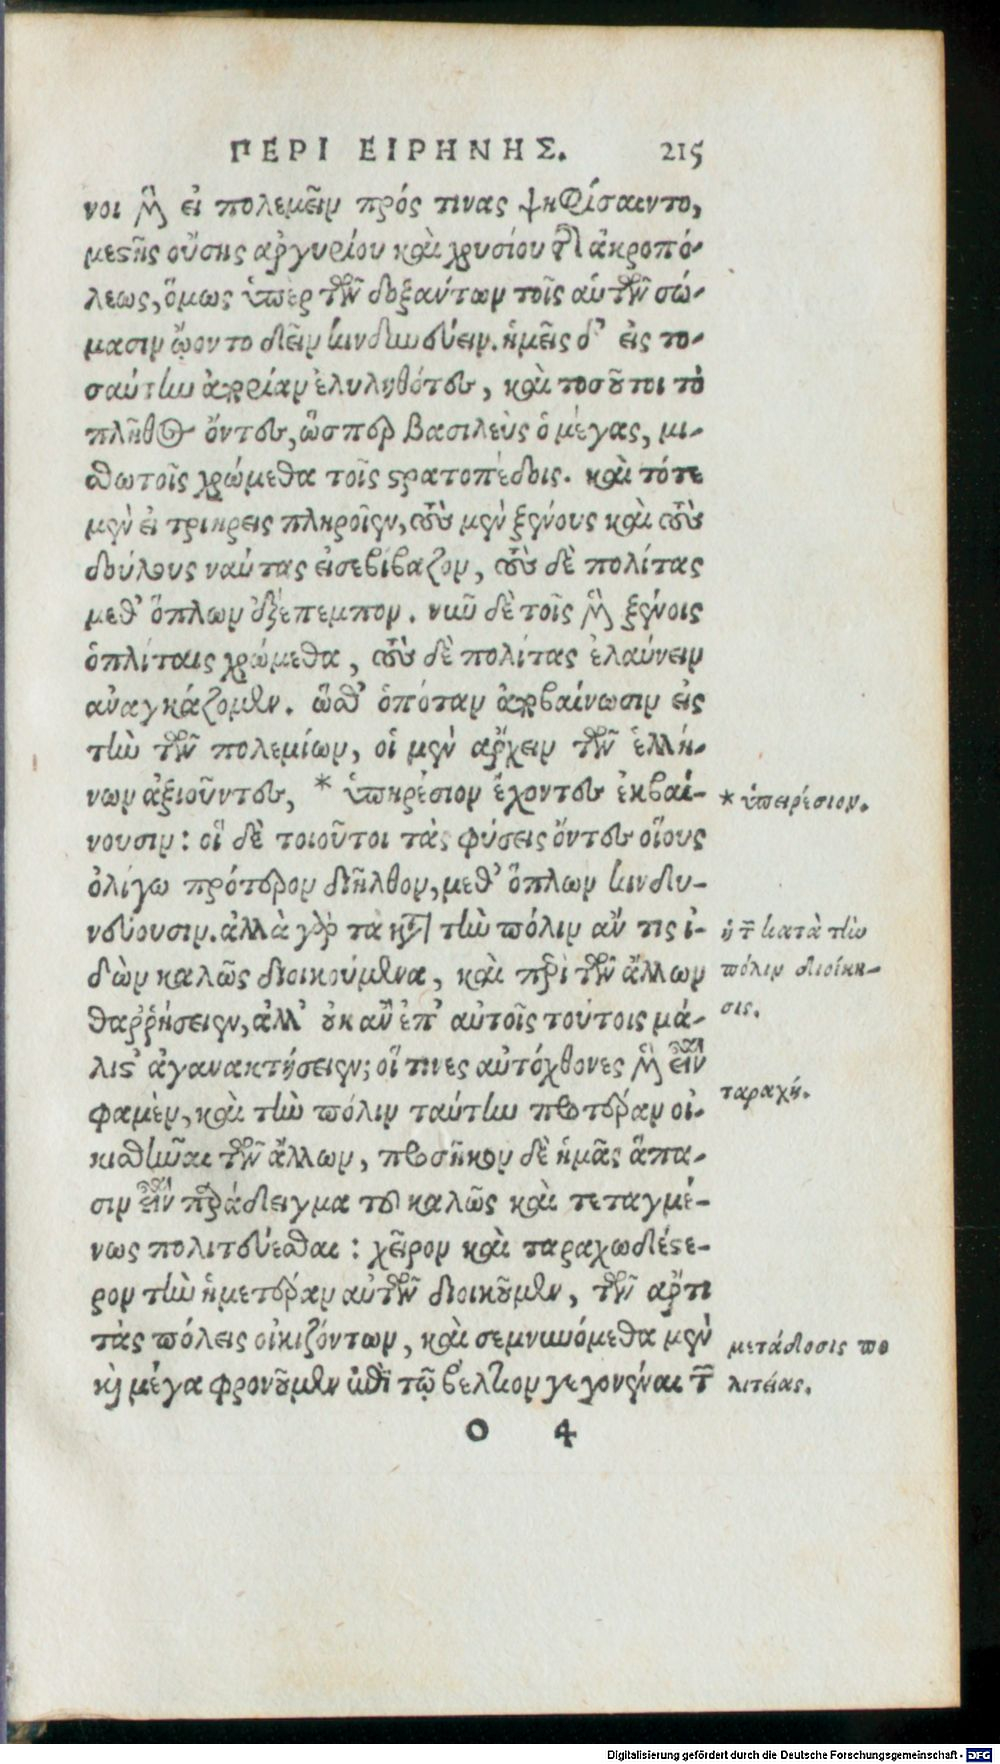 ΠΕΡΙ ΕΙΡΗΝΗΣ. 215
νοι μὲν εἰ πολεμεῖν πρός τινας ψηφίσαιντο,
μεστῆς οὔσης ἀργυρίου καὶ χρυσίου τῆς ἀκροπό-
λεως, ὅμως ὑπὲρ τῶν δοξάντων τοῖς αὑτῶν σώ-
μασιν ᾤοντο δεῖν κινδυνεύειν. ἡμεῖς δ' εἰς το-
σαύτην ἀπορίαν ἐληλυθότες, καὶ τοσοῦτοι τὸ
πλῆθος ὄντες, ὥσπερ βασιλεὺς ὁ μέγας, μι-
σθωτοῖς χρώμεθα τοῖς στρατοπέδοις. καὶ τότε
μὲν εἰ τριήρεις πληροῖεν, τοὺς μὲν ξένους καὶ τοὺς
δούλους ναύτας εἰσεβίβαζον, τοὺς δὲ πολίτας
μεθ' ὅπλων ἐξέπεμπον. νῦν δὲ τοῖς μὲν ξένοις
ὁπλίταις χρώμεθα, τοὺς δὲ πολίτας ἐλαύνειν
ἀναγκάζομεν. ὥσθ' ὁπόταν ἀποβαίνωσιν εἰς
τὴν τῶν πολεμίων, οἱ μὲν ἄρχειν τῶν ἑλλή-
νων ἀξιοῦντες, * ὑπηρέσιον ἔχοντες ἐκβαί-
νουσιν: οἱ δὲ τοιοῦτοι τὰς φύσεις ὄντες οἵους
ὀλίγω πρότερον διῆλθον, μεθ' ὅπλων κινδυ-
νεύουσιν. ἀλλὰ γὰρ τὰ κατὰ τὴν πόλιν ἄν τις ἰ-
δὼν καλῶς διοικούμενα, καὶ περὶ τῶν ἄλλων
θαῤῥήσειεν, ἀλλ' οὐκ ἂν ἐπ' αὐτοῖς τούτοις μά-
λιστ' ἀγανακτήσειεν; οἵ τινες αὐτόχθονες μὲν εἶναι
φαμὲν, καὶ τὴν πόλιν ταύτην προτέραν οἰ-
κισθῆναι τῶν ἄλλων, προσῆκον δὲ ἡμᾶς ἅπα-
σιν εἶναι παράδειγμα τοῦ καλῶς καὶ τεταγμέ-
νως πολιτεύεσθαι: χεῖρον καὶ ταραχωδέστε-
ρον τὴν ἡμετέραν αὐτῶν διοικοῦμεν, τῶν ἄρτι
τὰς πόλεις οἰκιζόντων, καὶ σεμνυνόμεθα μὲν
καὶ μέγα φρονοῦμεν ἐπὶ τῷ βέλτιον γεγονέναι τῶν
* ὑπειρέσιον.
ἡ τῶν κατὰ τὴν
πόλιν διοίκη-
σις.
ταραχή.
μετάδοσις πο
λιτείας.
O 4
Digitalisierung gefördert durch die Deutsche Forschungsgemeinschaft - DFG